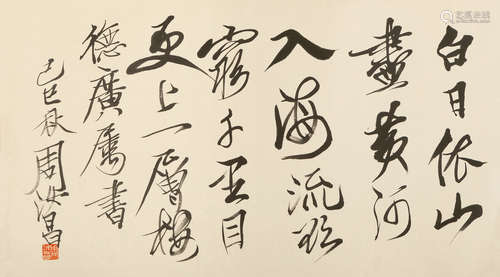 白日依山
盡黃河
入海流欲
窮千里目
更上一層樓
德廣屬書
己巳秋周汝昌